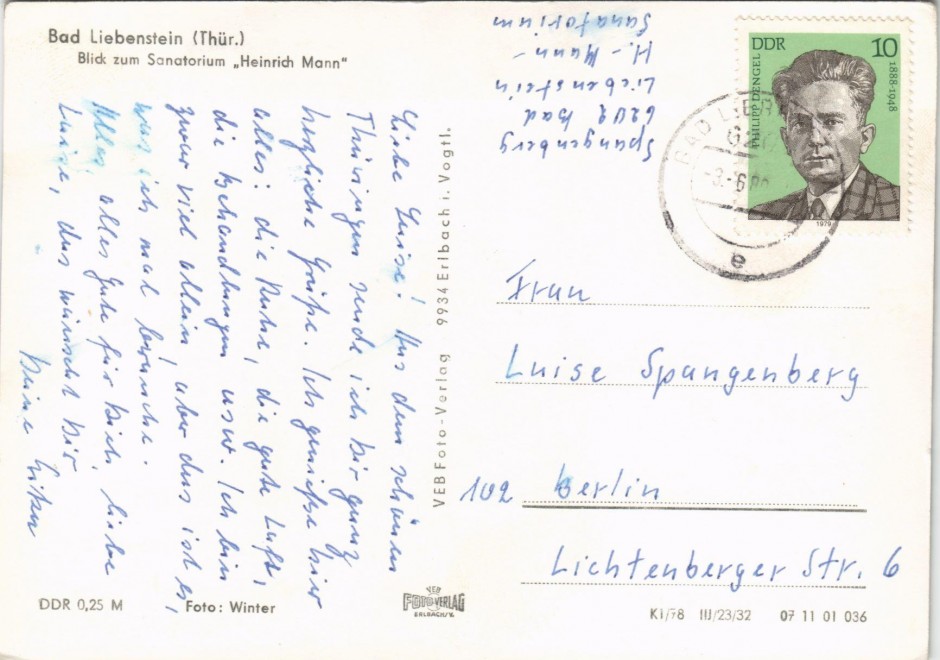 Bad Liebenstein (Thür.)
Blick zum Sanatorium „Heinrich Mann“
Liebe Luise! Aus dem schönen
Thüringen sende ich Dir ganz
herzliche Grüße. Ich genieße hier
alles: die Ruhe, die gute Luft,
die Behandlungen usw. Ich bin
zwar viel allein, aber das ist es,
was ich mal brauche.
Alles, alles Gute für Dich, liebe
Luise, das wünscht Dir
Deine
DDR 0,25 M
Foto: Winter
VEB Foto-Verlag 9934 Erlbach i. Vogtl.
VEB
FOTO-VERLAG
ERLBACH/V.
Spangenberg
6202 Bad
Liebenstein
H.-Mann-
Sanatorium
DDR 10
PHILIPP DENGEL 1888-1948
1979
BAD LIEB
620
-3.-6.80
e
Frau
Luise Spangenberg
102 Berlin
Lichtenberger Str. 6
K1/78 III/23/32 07 11 01 036